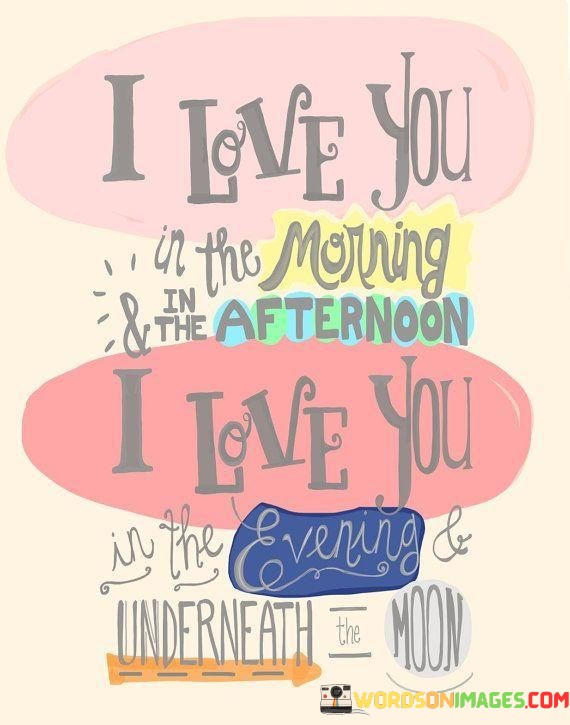 I LOVE YOU
in the Morning
& IN THE AFTERNOON
I LOVE YOU
in the Evening &
UNDERNEATH the MOON
WORDSONIMAGES.COM